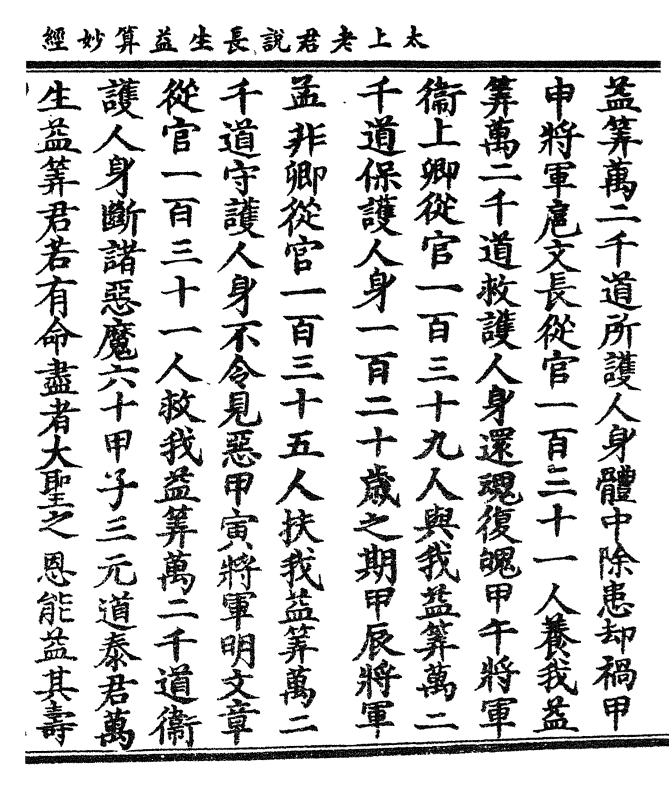 太上老君說長生益算妙經
益筭萬二千道所護人身體中除患却禍甲
申將軍扈文長從官一百三十一人養我益
筭萬二千道救護人身還魂復魄甲午將軍
衞上卿從官一百三十九人與我益筭萬二
千道保護人身一百二十歲之期甲辰將軍
孟非卿從官一百三十五人扶我益筭萬二
千道守護人身不令見惡甲寅將軍明文章
從官一百三十一人救我益筭萬二千道衞
護人身斷諸惡魔六十甲子三元道泰君萬
生益筭君若有命盡者大聖之恩能益其壽